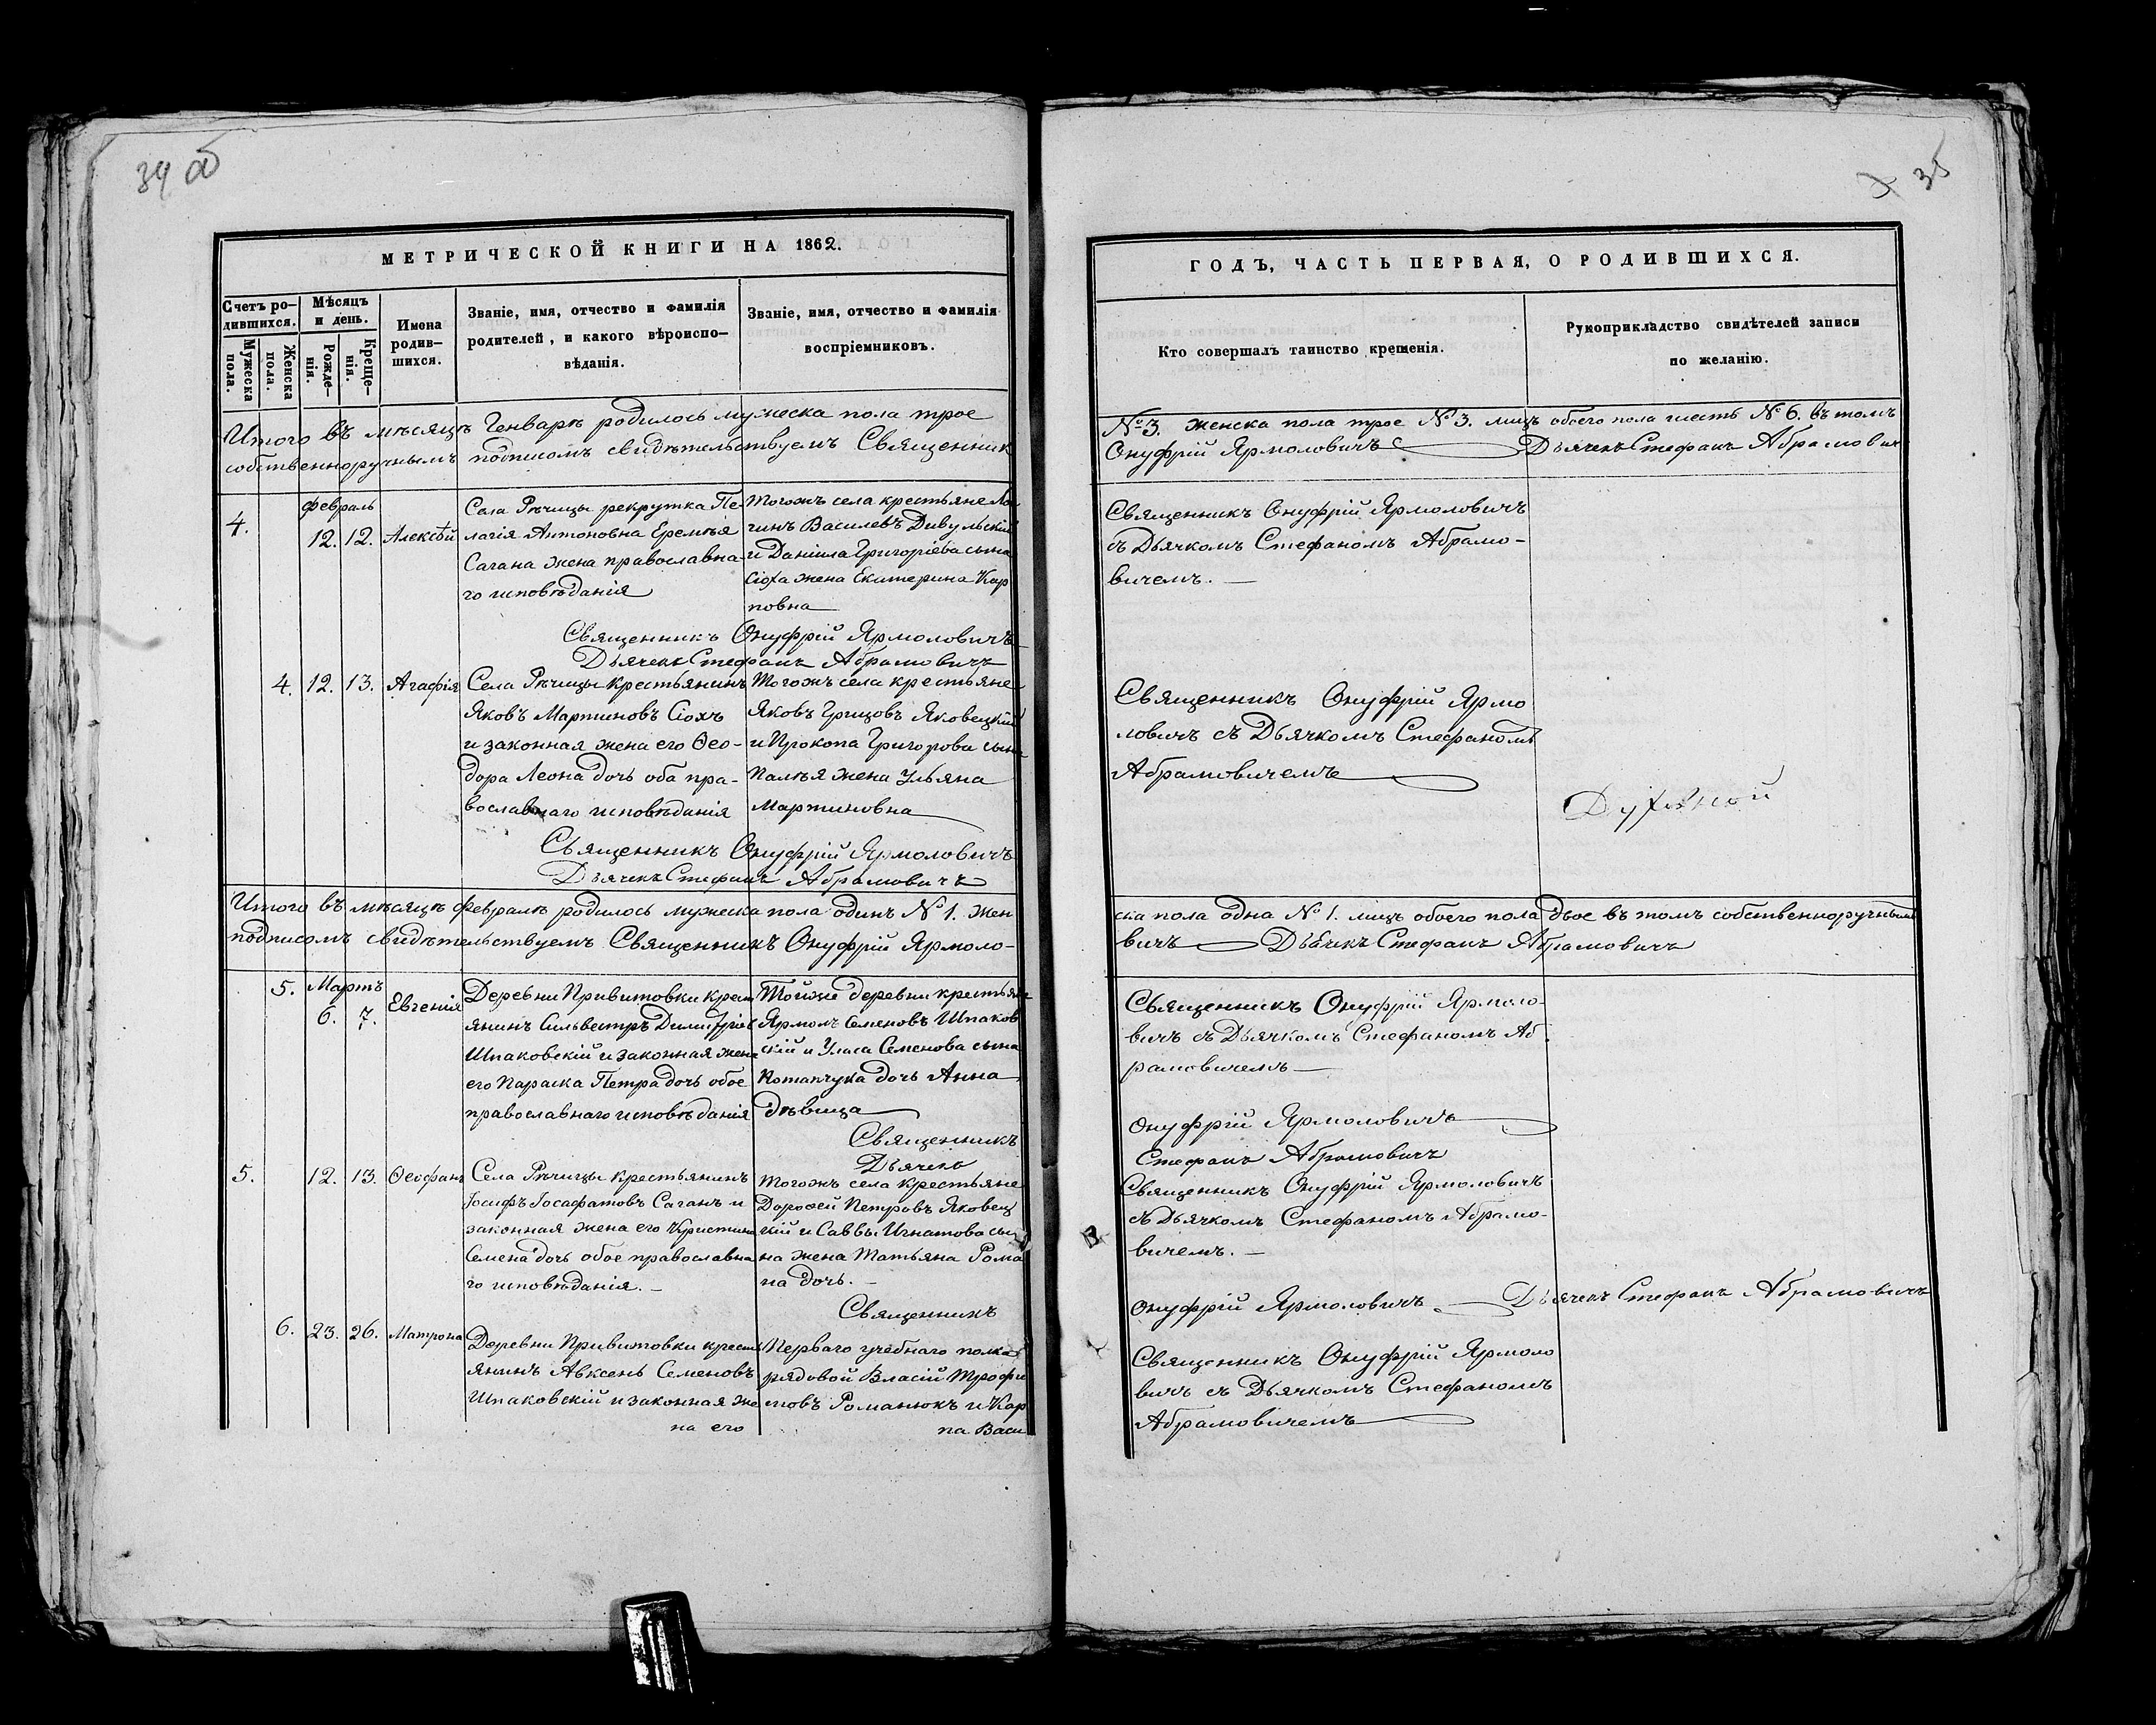 34 об
МЕТРИЧЕСКОЙ КНИГИ НА 1862.
Счетъ ро-
дившихся.
Мужеска
пола.
Женска
пола.
Мѣсяцъ
и день.
Рожде-
нія.
Креще-
нія.
Имена
родив-
шихся.
Званіе, имя, отчество и фамилія
родителей, и какого вѣроиспо-
вѣданія.
Званіе, имя, отчество и фамилія
воспріемниковъ.
Итого въ мѣсяцѣ Генварѣ родилось мужеска пола трое
собственноручнымъ подписомъ свидѣтельствуемъ Священник
4.
февраль
12. 12. Алексѣй
Села Рѣчицы рекрутка Пе-
лагія Антоновна Еремѣя
Сагана жена православна
го исповѣданія
Тогожъ села крестьяне Ло
гинъ Василевъ Дивульскій
и Даніила Григоріева сына
Сіоха жена Екатерина Кар
повна
Священникъ Онуфрій Ярмоловичъ
Дьячекъ Стефанъ Абрамовичъ
4. 12. 13. Агафія
Села Рѣчицы крестьянинъ
Яковъ Мартиновъ Сіохъ
и законная жена его Ѳео-
дора Леона дочь оба пра-
вославнаго исповѣданія
Тогожъ села крестьяне
Яковъ Грицовъ Яковецкій
и Прокопа Григорова сына
жена Ульяна
Мартиновна
Священникъ Онуфрій Ярмоловичъ
Дьячекъ Стефанъ Абрамовичъ
Итого въ мѣсяцѣ Февралѣ родилось мужеска пола одинъ № 1. жен
подписомъ свидѣтельствуемъ Священникъ Онуфрій Ярмоло-
5. Мартъ
6. 7. Евгенія
Деревни Привитовки крест
янинъ Сильвестръ Димитріев
Шпаковскій и законная жена
его Параска Петра дочь обое
православнаго исповѣданія
Тойже деревни крестьяне
Ярмолъ Семеновъ Шпаков
скій и Уласа Семенова сына
Котапчука дочь Анна
дѣвица
Священникъ
Дьячекъ
5. 12. 13. Ѳеофанъ
Села Рѣчицы крестьянинъ
Іосифъ Іосафатовъ Саганъ и
законная жена его Христина
Семена дочь обое православна
го исповѣданія. -
Тогожъ села крестьяне
Дорофей Петровъ Яковец
кій и Саввы Игнатова сы
на жена Татьяна Рома
на дочь. -
Священникъ
6. 23. 26. Матрона
Деревни Привитовки крест
янинъ Авксень Семеновъ
Шпаковскій и законная же
на его
Перваго учебнаго полка
рядовой Власій Трофи
мовъ Романюкъ и Кар
па Васи
35
ГОДЪ, ЧАСТЬ ПЕРВАЯ, О РОДИВШИХСЯ.
Кто совершалъ таинство крещенія.
Рукоприкладство свидѣтелей записи
по желанію.
№ 3. женска пола трое № 3. лицъ обоего пола шесть № 6. въ томъ
Онуфрій Ярмоловичъ Дьячекъ Стефанъ Абрамович
Священникъ Онуфрій Ярмоловичъ
съ Дьячкомъ Стефаномъ Абрамо-
вичемъ. -
Священникъ Онуфрій Ярмо
ловичъ съ Дьячкомъ Стефаномъ
Абрамовичемъ
ска пола одна № 1. лицъ обоего пола двое въ томъ собственноручнымъ
вичъ Дьячекъ Стефанъ Абрамовичъ
Священникъ Онуфрій Ярмоло-
вичъ съ Дьячкомъ Стефаномъ Аб
рамовичемъ
Онуфрій Ярмоловичъ
Стефанъ Абрамовичъ
Священникъ Онуфрій Ярмоловичъ
съ Дьячкомъ Стефаномъ Абрамо-
вичемъ. -
Онуфрій Ярмоловичъ. Дьячекъ Стефанъ Абрамовичъ
Священникъ Онуфрій Ярмоло
вичъ съ Дьячкомъ Стефаномъ
Абрамовичемъ